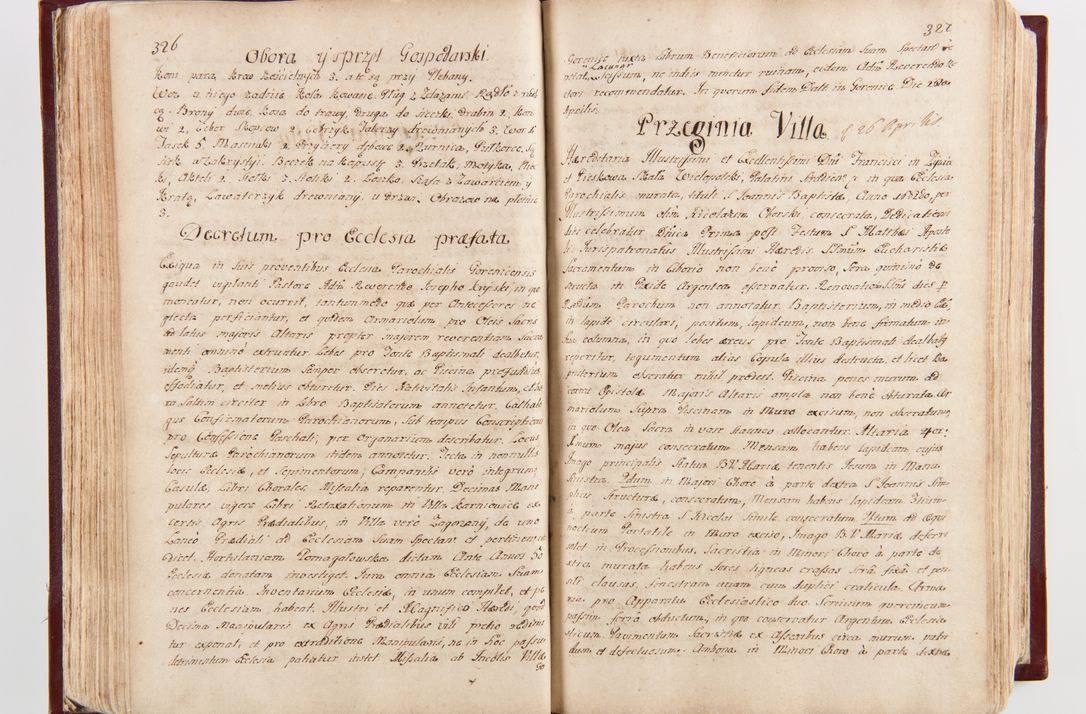 326
Obora y sprzęt Gospodarski.
Koni para, Krow Kościelnych 3. a te są przy Plebany.
Woz u niego zadnie Koła Kowane, Pług z Zelazami, Radło z
Brony dwie, Kosa do trawy, druga do Sieczki, drabin 2, Kon
wi 2, Ceber Skopcow 2, Cebrzyk, Talerzy drewnianych 3, Wor 1
Jasek 5, Maznica 2, dębowe 2, Kurnica,
Siek a Zakrystyi. Beczek na kapustę 3, Przetak, Motyka,
ki, Okseli 2, Stołki 3, Stoliki 2, Łozko, Szafa z Zawarciem y
Kratą, Lawaterzyk drewniany, u Drzwi, Obrazow na płotnie
3.
Decretum pro Ecclesia præfata
Exigua in suis proventibus Ecclesia Parochialis Gorenicensis
gaudet vigilanti Pastore Adm Reverendo Josepho in quo
moneatur, non occurrit, tantummodo quæ per Antecessores ne
glecta perficiantur, et quidem Ormariolum pro Oleis Sacris
ad latus majoris Altaris propter majorem reverentiam Sacra
menti omnino extruatur. Lebes pro Fonte Baptismali dealbetur,
idemq Baptisterium semper obseretur, ac Piscina profundius
effodiatur, et melius obturetur. Dies Nativitatis Infantum, et ho
ra saltim circiter in Libro Baptisatorum annotetur. Cathalo
gus Confirmatorum Parochianorum, sub tempus Conscriptionis
pro Confessione Paschali, per Organarium describatur. Locus
Sepulturæ Parochianorum itidem annotetur. Tecta in nonnullis
locis Ecclesiæ, et Sepimentorum, Campanilis vero integrum
Casulæ, Libri Chorales, Missalia reparentur. Decimas Mani
pulares vigore Libri Retaxationum in Villa Karniowice ex
certis Agris Prædialibus, in Villa vero Zagorzany, de uno
Laneo Prædiali ad Ecclesiam suam spectare et pertinere
dicet. Hortulaniam Pomagalowska dictam Ante Annos 30
Ecclesiæ donatam investiget. Jura omnia Ecclesiam suam
concernentia, Inventarium Ecclesiæ, in unum complet, et pe
nes Ecclesiam habeat. Illustri et Magnifico Hæredi, quod
Decima Manipularis ex Agris Prædialibus vili pretio redimi
tur exponat, et pro extraditione Manipularis, ne in hoc passu
detrimentum Ecclesia patiatur instet Missalia ab Incolis Villæ
Go
327
Gorenice juxta Librum Beneficiorum ad Ecclesiam suam spectant re
petat, Lacunar scissum, ne indies minetur ruinam, eidem Adm Reverendo Re
ctori recommendatur. In quorum fidem Datt in Gorenice Die
Aprilis.
Przeginia Villa d 26 Aprilis
Hæreditaria Illustrissimi et Excellentissimi Dni Francisci in Zywiec
et Pieskowa Skała Wielopolski, Palatini in qua Ecclesia
Parochialis murata, tituli S Joannis Baptistæ, Anno per
Illustrissimum olim Nicolaum Oborski consecrata, Dedicationis
dies celebratur Dnica Prima post Festum S Matthæi Aposto
li Jurispatronatus Illustrissimi Hæredis. SSmum Eucharistiæ
Sacramentum in Ciborio non bene proviso, Sera omnino de
structa in Pixide Argentea asservatur. Renovationis dies p
Rndum Parochum non annotatur. Baptisterium, in medio
in lapide circulari, positum, lapideum, non bene formatum in
star columna, in quo lebes æreus pro Fonte Baptismali dealbatus
reperitur, tegumentum alias Copula illius destructa, et licet Ba
ptisterium obseratur nihil prodest. Piscina penes murum ad
cornu Epistolæ Majoris Altaris ampla non bene obturata, Or
mariolum supra Piscinam in Muro excisum, non obseratum,
in quo Olea Sacra in vase stanneo collocantur. Altaria 4or:
Imum majus consecratum Mensam habens lapideam cujus
Imago principalis Statua B.V. Mariæ tenentis Jesum in Manu
sinistra. 2dum in Majori Choro à parte dextra S Joannis Sim
plicis structuræ, consecratum, Mensam habens lapideam 3tium
à parte Sinistra S Nicolai simile consecratum 4tum ad Equi
noctium Portatile in Muro exciso, Imago B.V. Mariæ deferri
solet in Processionibus. Sacristia in Minori Choro à parte de
xtra murata habens fores ligneas crassas Serâ fixâ et pen
sili clausas, fenestram unam cum duplici craticula. Orma
ria pro Apparatu Ecclesiastico duo Scrinium querceineum
passim ferro obductum, in quo conservatur Argentum Ecclesia
sticum. Pavimentum Sacristiæ ex Asseribus circa murum putri
dum et defectuosum. Ambona in Minori Choro à parte dextra